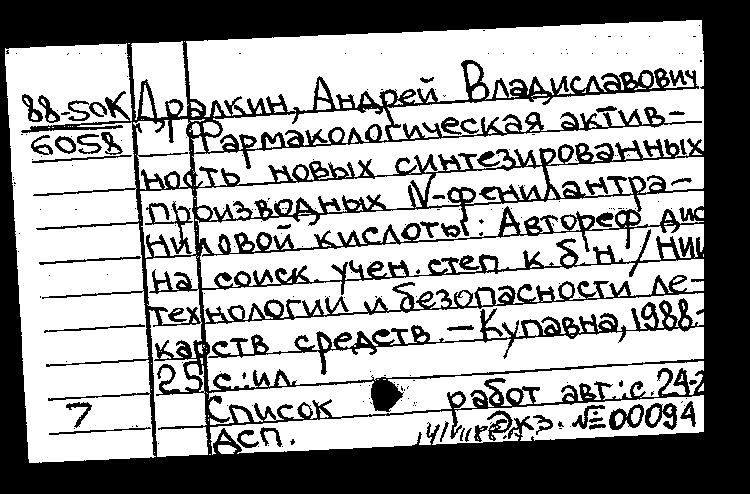 88-50К Дралкин, Андрей Владиславович
6058 Фармакологическая актив-
ность новых синтезированных
производных N-фенилантра-
ниловой кислоты: Автореф дис
на соиск. учен. степ к.б.н. / НИИ
технологии и безопасности ле-
карств средств. – Купавна, 1988.-
25 с.: ил.
7 Список работ авт.: с. 24-2
Асп. Экз. № 00094